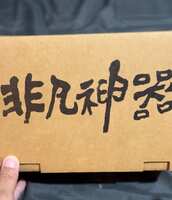 非凡神器